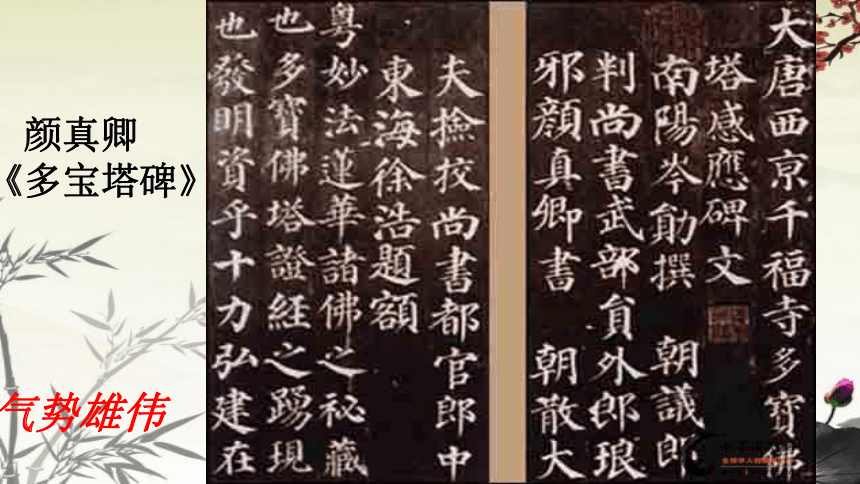 颜真卿
《多宝塔碑》
气势雄伟
大唐西京千福寺多寶佛
塔感應碑文
南陽岑勛撰 朝議郎
判尚書武部員外郎琅
邪顏真卿書 朝散大
夫撿挍尚書都官郎中
東海徐浩題額
粵妙法蓮華諸佛之祕藏
也多寶佛塔證經之踴現
也發明資乎十力弘建在